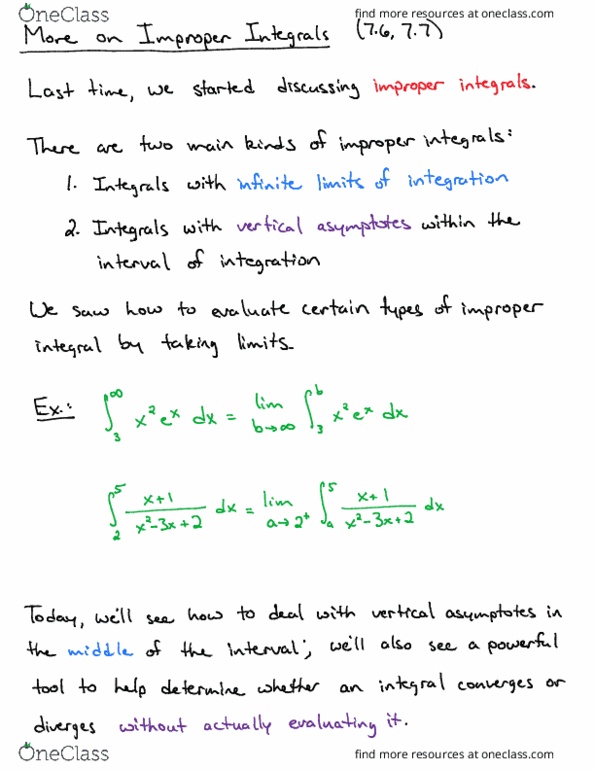 OneClass
find more resources at oneclass.com
More on Improper Integrals (7.6, 7.7)
Last time, we started discussing improper integrals.
There are two main kinds of improper integrals:
1. Integrals with infinite limits of integration
2. Integrals with vertical asymptotes within the
interval of integration
We saw how to evaluate certain types of improper
integral by taking limits.
Ex.: ∫₃^∞ x² eˣ dx = lim b→∞ ∫₃^b x² eˣ dx
∫₂^5 (x+1)/(x²-3x+2) dx = lim a→2⁺ ∫ₐ^5 (x+1)/(x²-3x+2) dx
Today, we'll see how to deal with vertical asymptotes in
the middle of the interval; we'll also see a powerful
tool to help determine whether an integral converges or
diverges without actually evaluating it.
OneClass
find more resources at oneclass.com